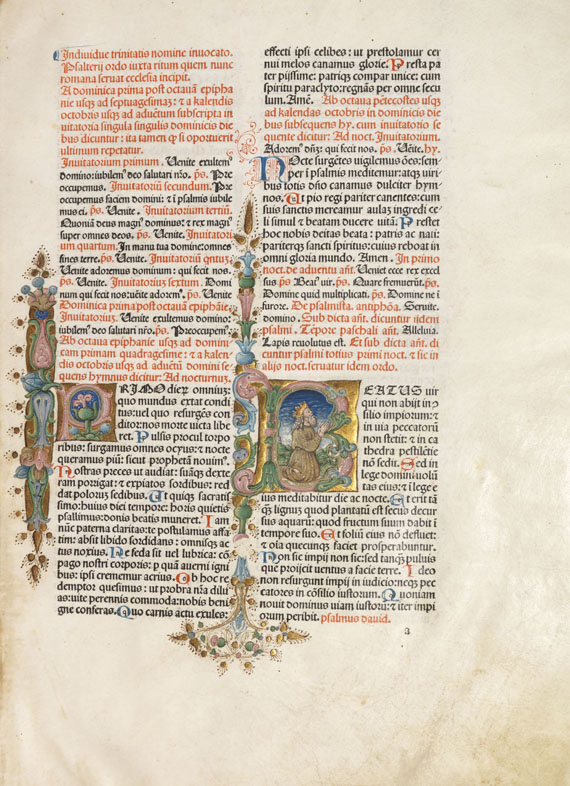 Individue trinitatis nomine inuocato.
Psalterij ordo iuxta ritum quem nunc
romana seruat ecclesia incipit.
A dominica prima post octauā epipha
nie usqꝫ ad septuagesimaꝫ: ⁊ a kalendis
octobris usqꝫ ad aduētum subscripta in
uitatoria singula singulis dominicis die
bus dicuntur: ita tamen qꝫ si oportuerit
ultimum repetatur.
Inuitatorium primum. Uenite exultem⁹
domino: iubilem⁹ deo salutari nr̄o. p̄s. Pre
occupemus. Inuitatoriū secundum. Pre
occupemus faciem domini: ⁊ ī psalmis iubile
mus ei. p̄s. Uenite. Inuitatoriū tertiū.
Quoniā deus magn⁹ dominus: ⁊ rex magn⁹
super omnes deos. p̄s. Uenite. Inuitatori
um quartum. In manu tua domine: omnes
fines terre. p̄s. Uenite. Inuitatoriū qntuꝫ.
Uenite adoremus dominum: qui fecit nos.
p̄s. Uenite. Inuitatoriuꝫ sextum. Domi
num qui fecit nos: uēite adorem⁹. p̄s. Uenite.
Dominica prima post octauā epiphāie.
Inuitatoriuꝫ. Uenite exultemus domino:
iubilem⁹ deo salutari nr̄o. p̄s. Preoccupem⁹.
Ab octaua epiphanie usqꝫ ad domini
cam primam quadragesime: ⁊ a kalen
dis octobris usqꝫ ad aduētū domini se
quens hymnus dicitur: Ad nocturnuꝫ.
PRIMO dieꝝ omniuꝫ:
quo mundus extat condi
tus: uel quo resurgēs con
ditor: nos morte uicta libe
ret. Pulsis procul torpo
ribus: surgamus omnes ocyus: ⁊ nocte
queramus piū: sicut prophetā nouim⁹.
Nostras preces ut audiat: suāqꝫ dexte
ram porrigat: ⁊ expiatos sordibus: red
dat poloruꝫ sedibus. Ut quiqꝫ sacratis
simo: huius diei tempore: horis quietis
psallimus: donis beatis muneret. Iam
nūc paterna claritas: te postulamus affa
tim: absit libido sordidans: omnisqꝫ ac
tus noxius. Ne feda sit uel lubrica: cō
pago nostri corporis: p quā auerni igni
bus: ipsi crememur acrius. Ob hoc re
demptor quesumus: ut probra nr̄a dilu
as: uite perennis commoda: nobis beni
gne conferas. Quo carnis actu exules:
effecti ipsi celibes: ut prestolamur cer
nui melos canamus glorie. Presta pa
ter pijssime: patriqꝫ compar unice: cum
spiritu paraclyto: regnās per omne secu
lum. Amē. Ab octaua pētecostes usqꝫ
ad kalendas octobris in dominicis die
bus subsequens hy. cum inuitatorio se
quente dicitur: Ad noct. Inuitatorium.
Adorem⁹ dn̄ꝫ: qui fecit nos. p̄s. Uēite. hy.
Nocte surgētes uigilemus oēs: sem
per ī psalmis meditemur: atqꝫ uiri
bus totis dn̄o canamus dulciter hym
nos. Ut pio regi pariter canentes: cum
suis sanctis mereamur aulaꝫ ingredi ce
li simul ⁊ beatam ducere uitā. Prestet
hoc nobis deitas beata: patris ac nati:
pariterqꝫ sancti spiritus: cuius reboat in
omni gloria mundo. Amen. In primo
noct. de aduentu an̄t. Ueniet ecce rex excel
sus p̄s Beat⁹ uir. p̄s. Quare fremuerūt. p̄s.
Domine quid multiplicati. p̄s. Domine ne ī
furore. De psalmista. antiphōa. Seruite.
domino. Sub dicta an̄t. dicuntur idem
psalmi. Tēpore paschali an̄t. Alleluia.
Lapis reuolutus est. Et sub dicta an̄t. di
cuntur psalmi totius primi noct. ⁊ sic in
alijs noct. seruatur idem ordo.
BEATUS uir
qui non abijt in cō
silio impiorum: ⁊
in uia peccatorū
non stetit: ⁊ in ca
thedra pestilētie
nō sedit. Sed in
lege domini uolū
tas eius: ⁊ ī lege e
ius meditabitur die ac nocte. Et erit tā
qꝫ lignuꝫ quod plantatū est secus decur
sus aquarū: quod fructum suum dabit ī
tempore suo. Et foliū eius nō defluet:
⁊ oīa quecunqꝫ faciet prosperabuntur.
Non sic impij non sic: sed tanqꝫ puluis
que proijcit uentus a facie terre. Ideo
non resurgunt impij in iudicio: neqꝫ pec
catores in cōsilio iustorum. Quoniam
nouit dominus uiam iustorū: ⁊ iter impi
orum peribit. psalmus dauid.
a